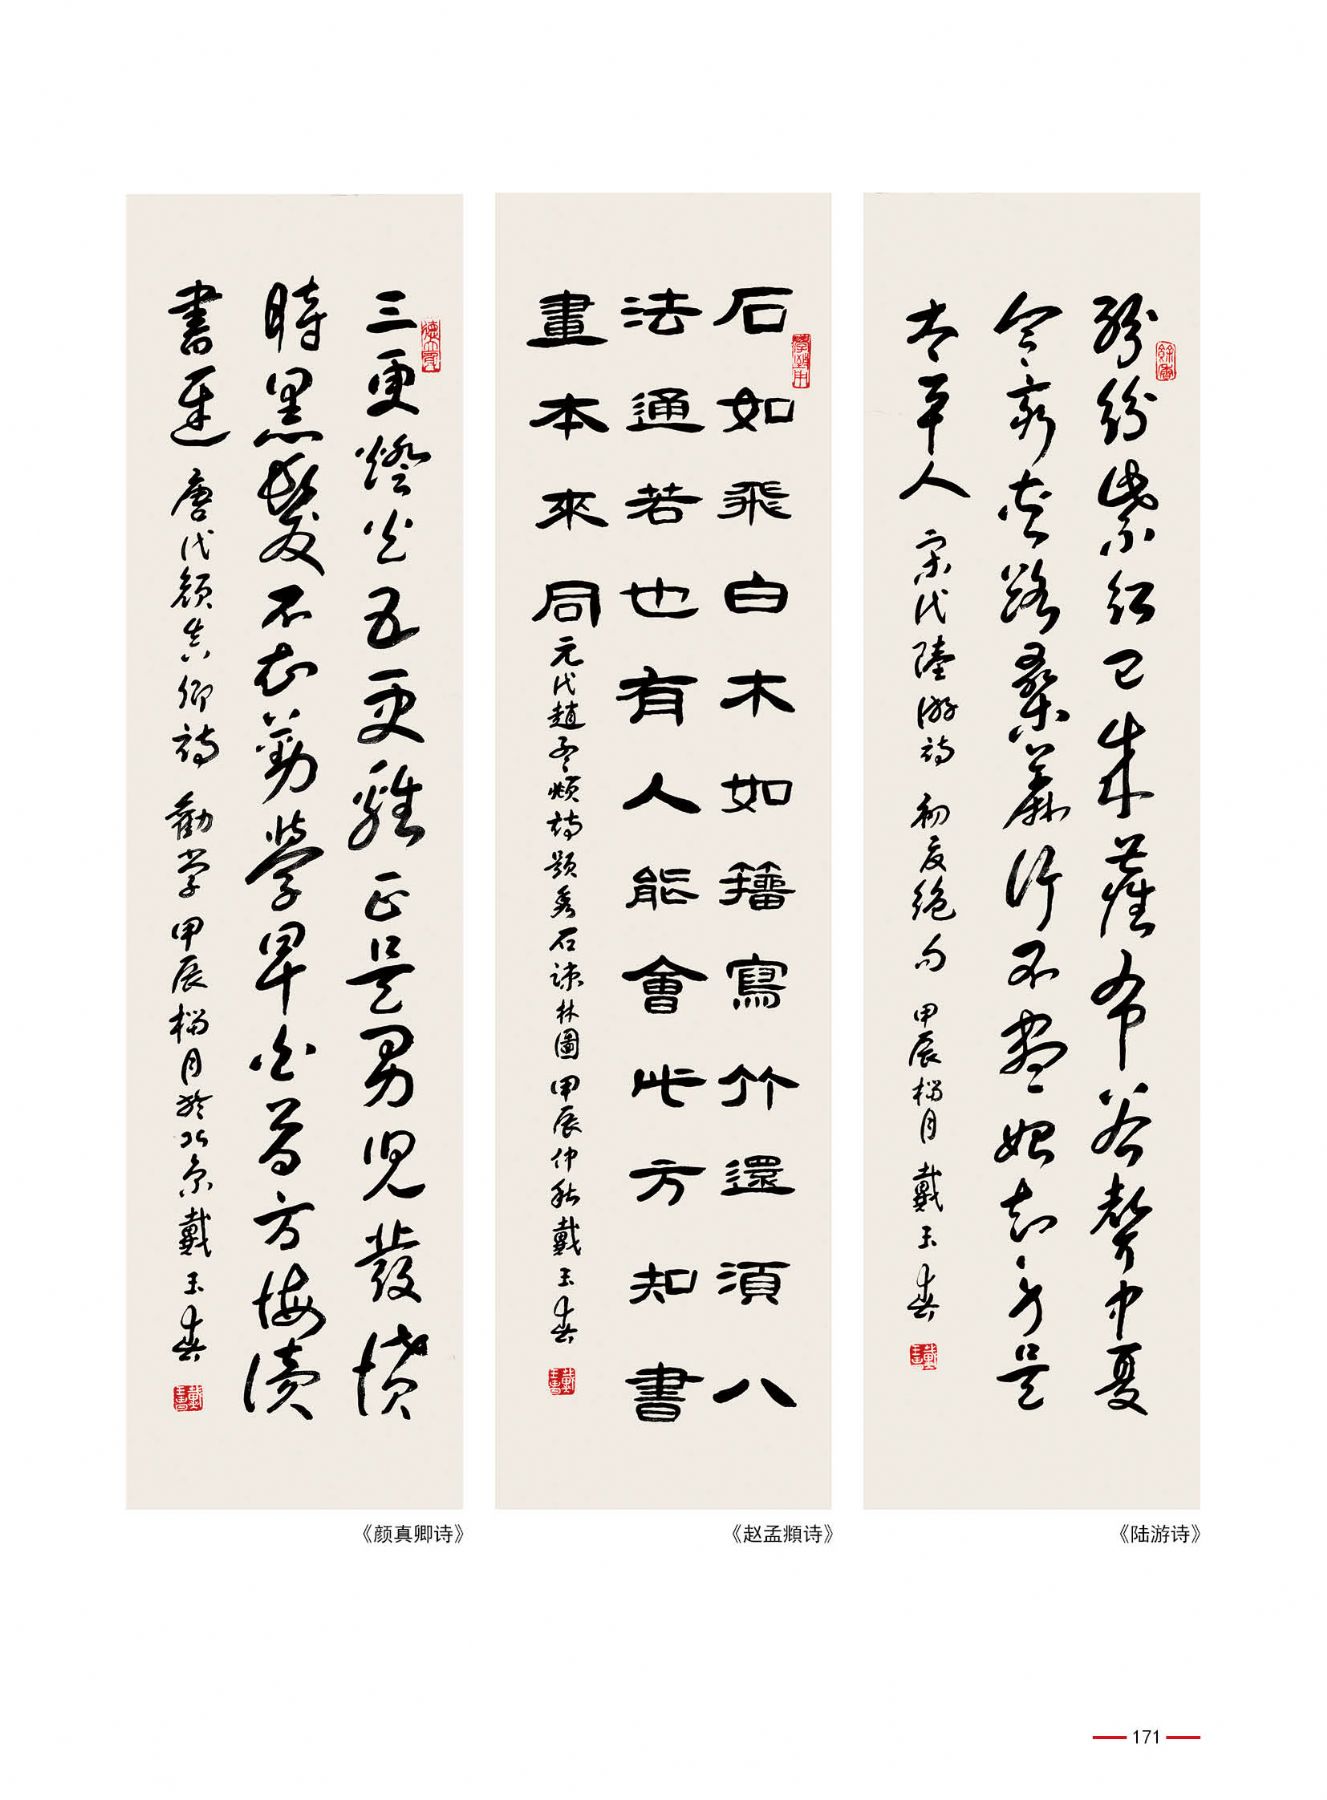 三更燈火五更雞正是男兒發憤
時黑髮不知勤學早白首方悔讀
書遲 唐代顏真卿詩 勸學 甲辰榴月於北京戴玉春
《颜真卿诗》
石如飛白木如籀寫竹還須八
法通若也有人能會此方知書
畫本來同 元代趙孟頫詩題秀石疎林圖 甲辰仲秋戴玉春
《赵孟頫诗》
紛紛紫紅已成塵布谷聲中夏
令新夾路桑麻行不盡始知身是
太平人 宋代陸游詩 初夏絕句 甲辰榴月 戴玉春
《陆游诗》
171